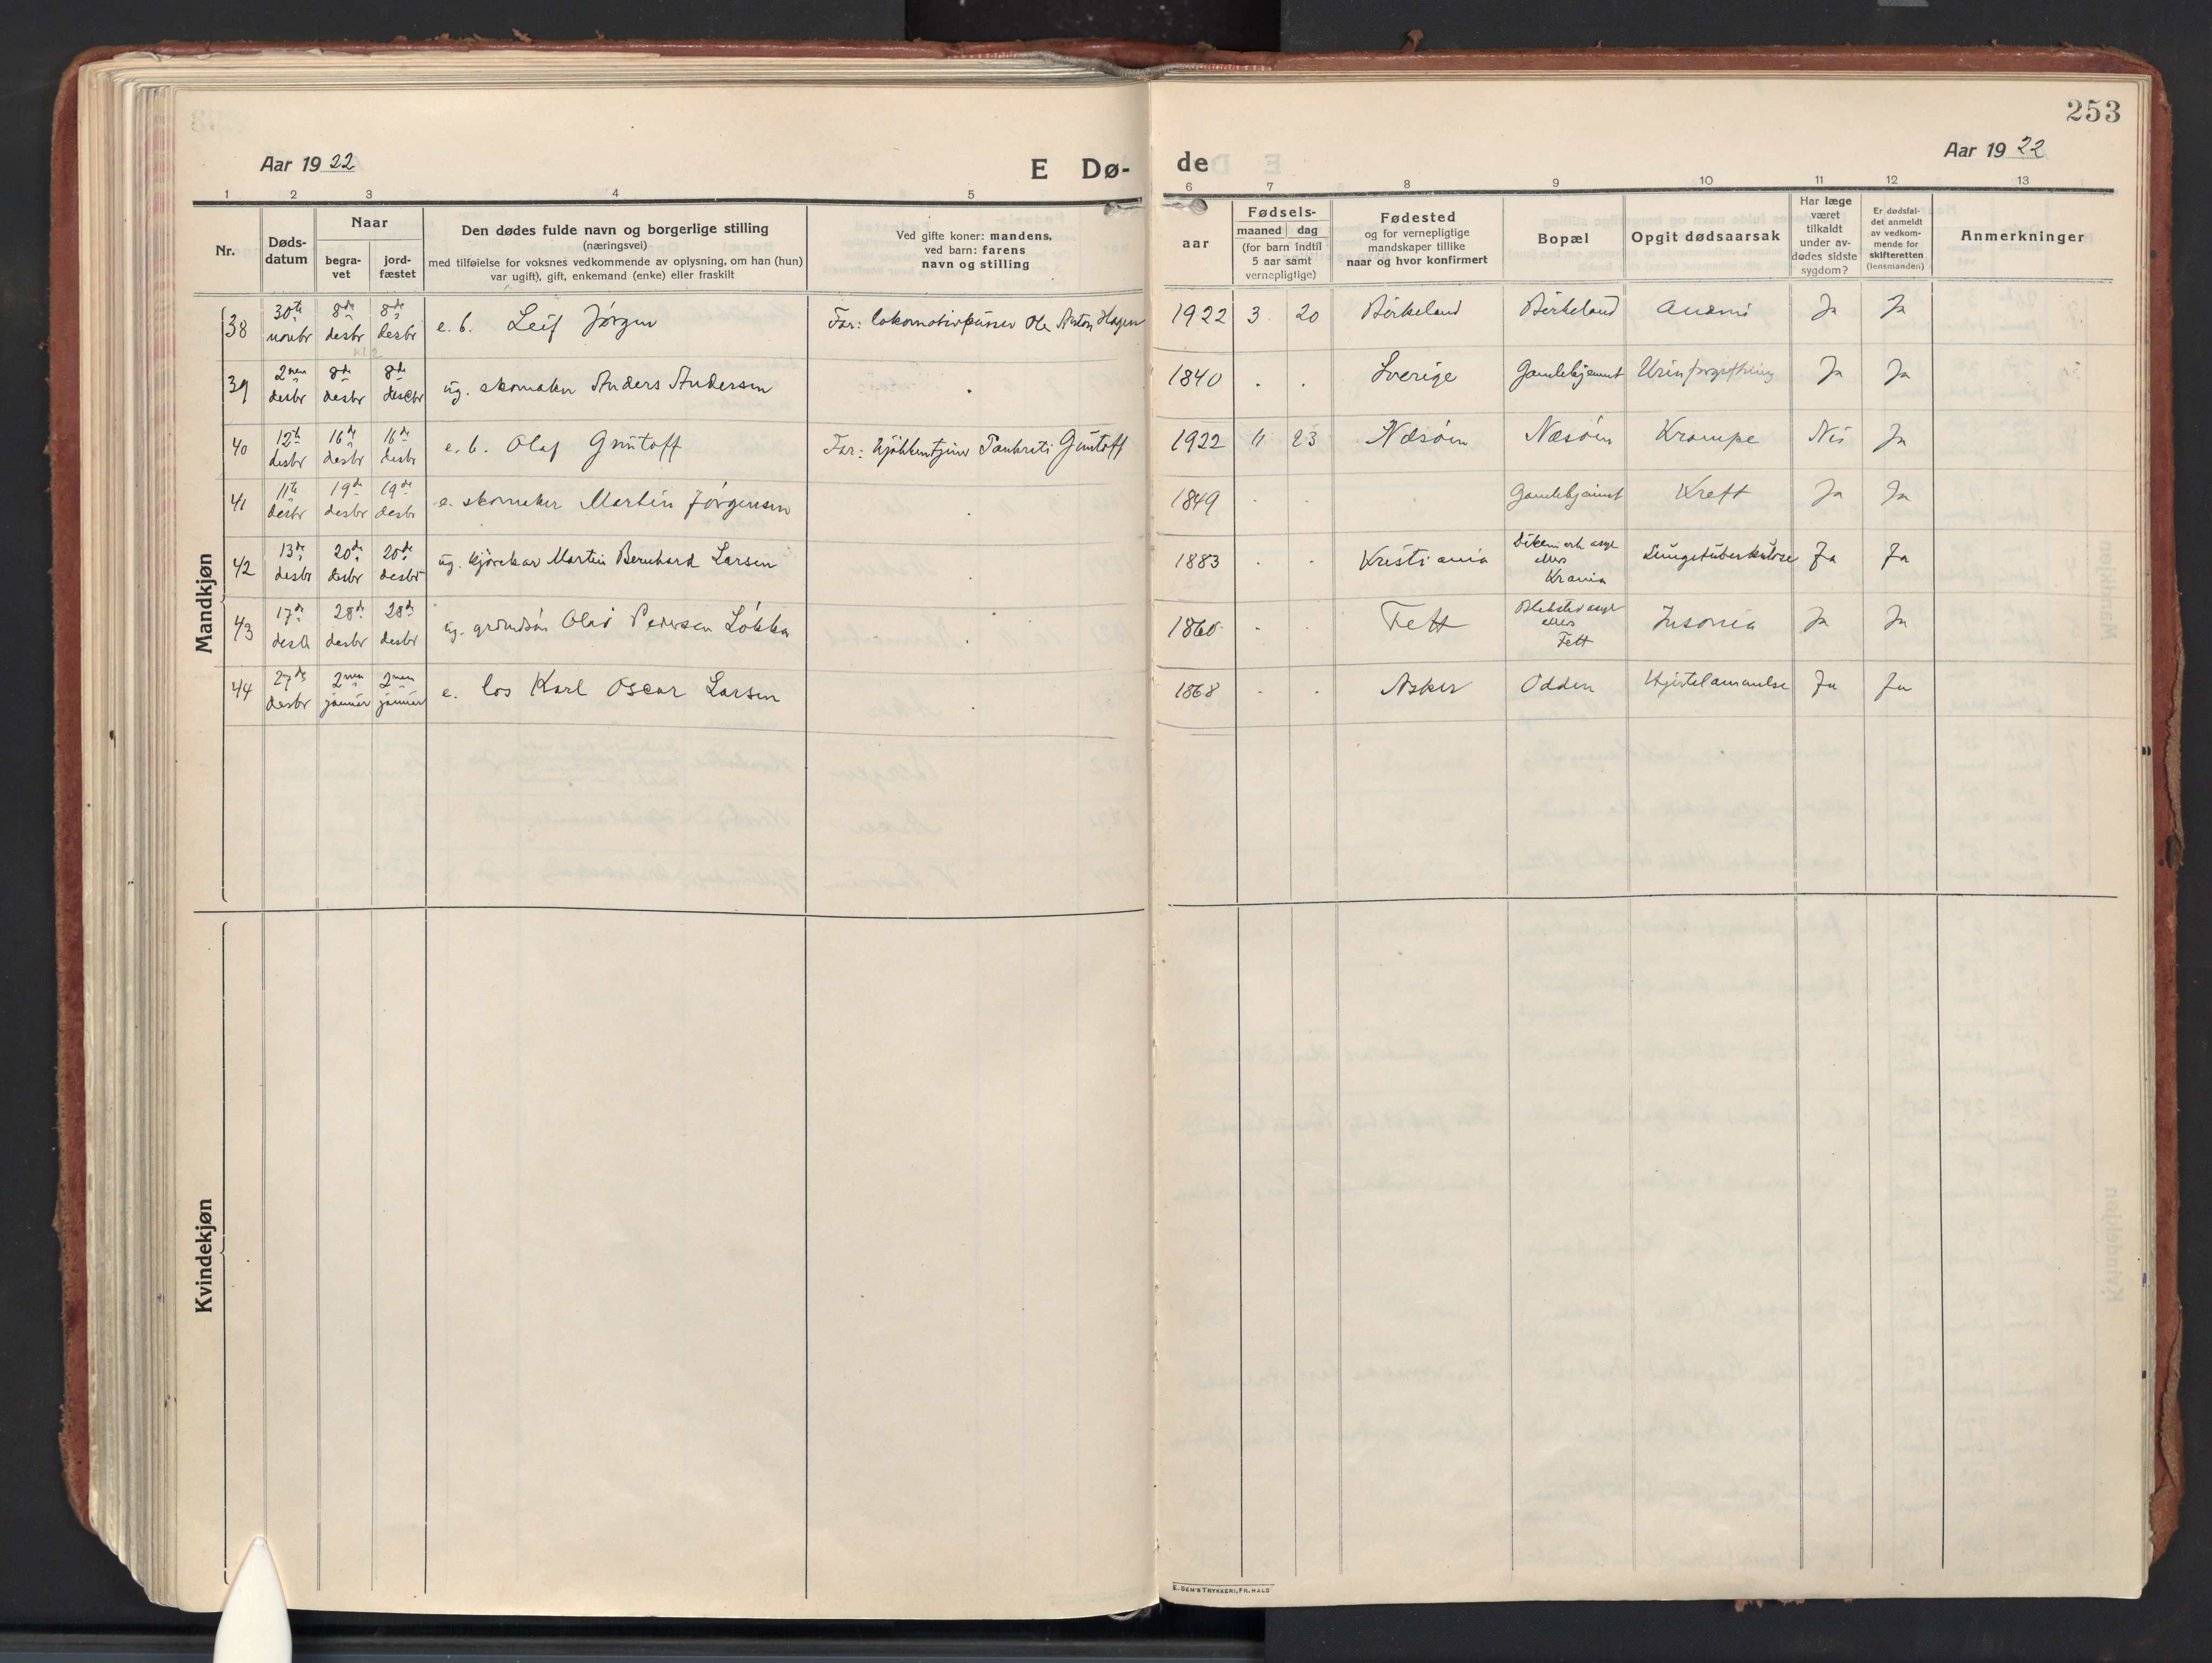 253
Aar 1922
E Dø-
de
Aar 1922
1 2 3 4 5 6 7 8 9 10 11 12 13
Nr.
Døds-
datum
Naar
begra-
vet
jord-
fæstet
Den dødes fulde navn og borgerlige stilling
(næringsvei)
med tilføielse for voksnes vedkommende av oplysning, om han (hun)
var ugift), gift, enkemand (enke) eller fraskilt
Ved gifte koner: mandens,
ved barn: farens
navn og stilling
Fødsels-
aar
maaned dag
(for barn indtil
5 aar samt
vernepligtige)
Fødested
og for vernepligtige
mandskaper tillike
naar og hvor konfirmert
Bopæl
Opgit dødsaarsak
Har læge
været
tilkaldt
under av-
dødes sidste
sygdom?
Er dødsfal-
det anmeldt
av vedkom-
mende for
skifteretten
(lensmanden)
Anmerkninger
Mandkjøn
38 30te novbr 8de desbr 8de desbr e. b. Leif Jørgen Far: lokomotivpusser Ole Anton Hagen 1922 3 20 Birkeland Birkeland Anæmi Ja Ja
39 2nen desbr 8de desbr 8de desebr ug. skomaker Anders Andersen 1840 Sverige Gamlehjemmet Urinforgiftning Ja Ja
40 12te desbr 16de desbr 16de desbr e. b. Olaf Gustoff Far: kjøkkentjener Pankrati Gustoff 1922 11 23 Nesøen Nesøen Krampe Nei Ja
41 11te desbr 19de desbr 19de desbr e. skomaker Martin Jørgensen 1849 Gamlehjemmet Kreft Ja Ja
42 13de desbr 20de desbr 20de desbr ug. kjørekar Martin Bernhard Larsen 1883 Kristiania Dikemark asyl
ellers
Krania Lungetuberkulose Ja Ja
43 17de desbr 28de desbr 28de desbr ug. Pedersen Løkka 1860 Fett Blakstad asyl
ellers
Fett Ja Ja
44 27de desbr 2nen januar 2nen januar e. los Karl Oscar Larsen 1868 Asker Odden Hjertelammelse Ja Ja
Kvindekjøn
E. SEM'S TRYKKERI, FR.HALD